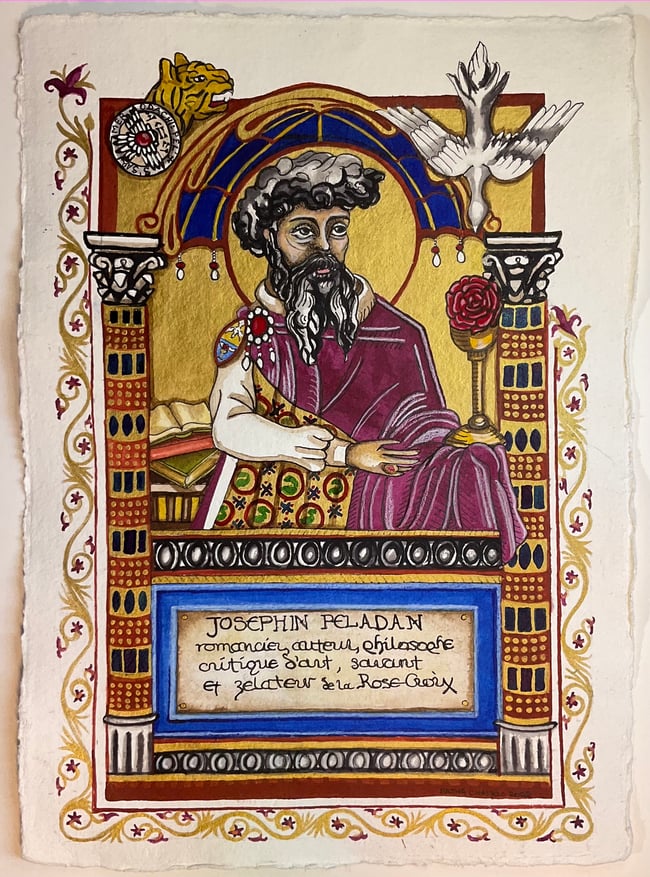 JOSEPHIN PELADAN
romancier, auteur, philosophe
critique d'art, savant
et zelateur de la Rose-Croix